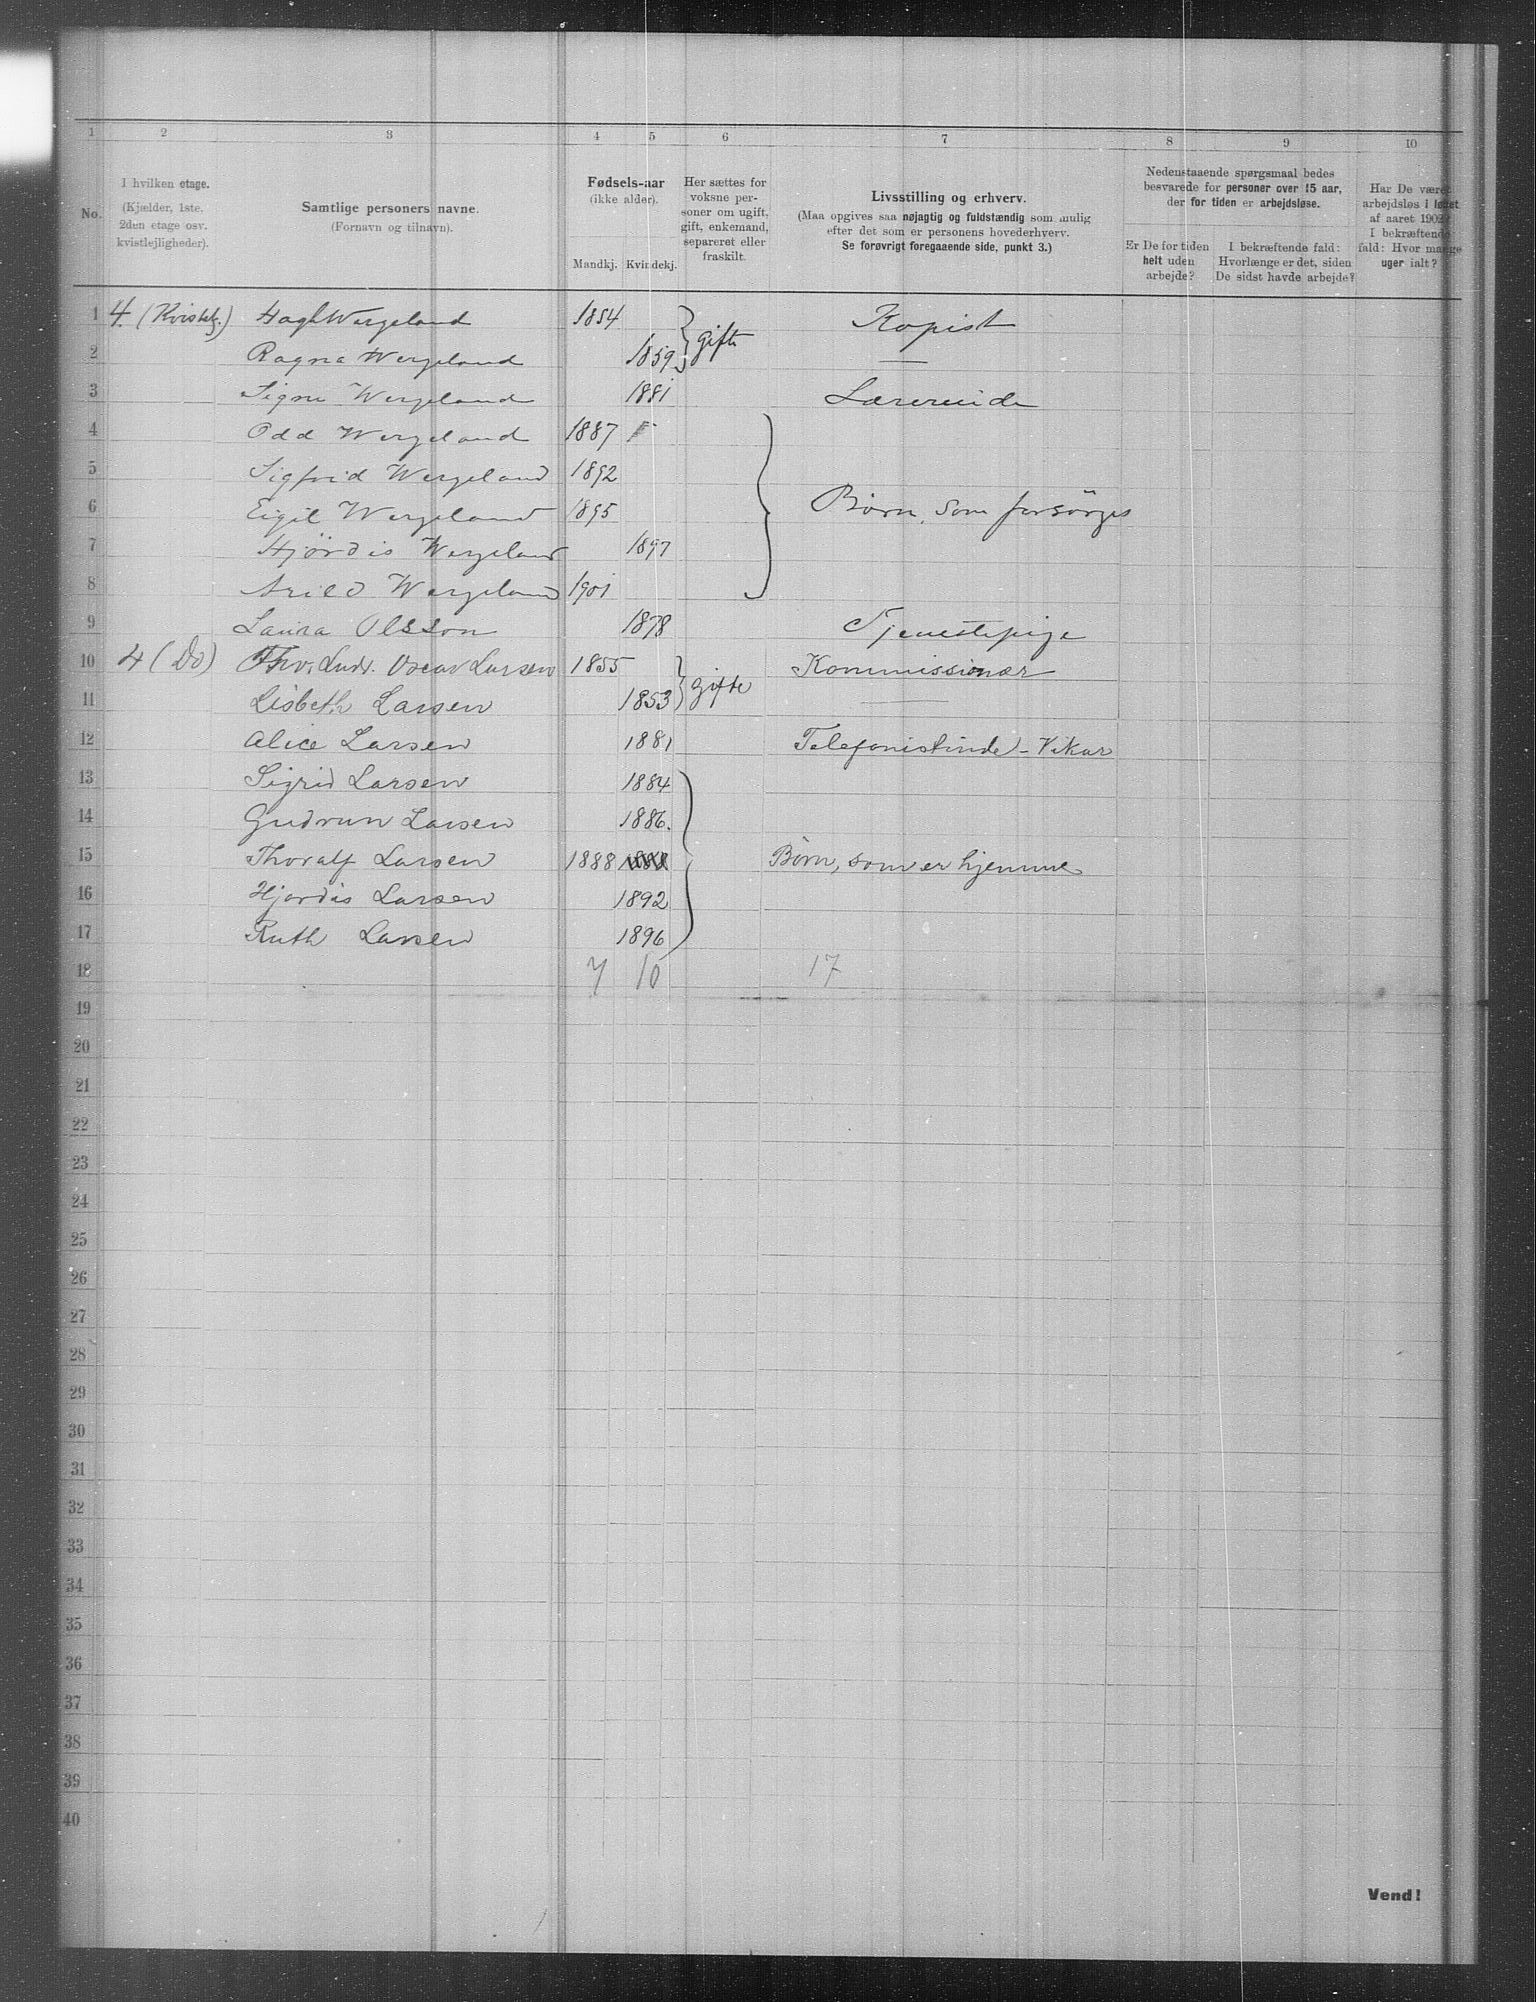 1 2 3 4 5 6 7 8 9 10
No.
I hvilken etage.
(Kjælder, 1ste.
2den etage osv.
kvistlejligheder).
Samtlige personers navne.
(Fornavn og tilnavn).
Fødsels-aar
(ikke alder).
Mandkj. Kvindekj.
Her sættes for
voksne per-
soner om ugift,
gift, enkemand,
separeret eller
fraskilt.
Livsstilling og erhverv.
(Maa opgives saa nøjagtig og fuldstændig som mulig
efter det som er personens hovederhverv.
Se forøvrigt foregaaende side, punkt 3.)
Nedenstaaende spørgsmaal bedes
besvarede for personer over 15 aar,
der for tiden er arbejdsløse.
Er De for tiden
helt uden
arbejde?
I bekræftende fald:
Hvorlænge er det, siden
De sidst havde arbejde?
Har De været
arbejdsløs i løbet
af aaret 1902?
I bekræftende
fald: Hvor mange
uger ialt?
1 4. (Kvistlj.) Wergeland 1854 gifte Kopist
2 Ragna Wergeland 1859 —
3 Signe Wergeland 1881 Lærerinde
4 Odd Wergeland 1887
5 Sigfrid Wergeland 1892
6 Eigil Wergeland 1895 Børn, som forsörges
7 Hjördis Wergeland 1897
8 Arild Wergeland 1901
9 Laura Olsson 1878 Tjenestepige
10 4 (Do) Thv. Ludv. Oscar Larsen 1855 gifte Kommissionær
11 Lisbeth Larsen 1853 —
12 Alice Larsen 1881 Telefonistinde - Vikar
13 Sigrid Larsen 1884
14 Gudrun Larsen 1886.
15 Thoralf Larsen 1888 1888 Børn, som er hjemme
16 Hjørdis Larsen 1892
17 Ruth Larsen 1896
18 7 10 17
19
20
21
22
23
24
25
26
27
28
29
30
31
32
33
34
35
36
37
38
39
40
Vend!